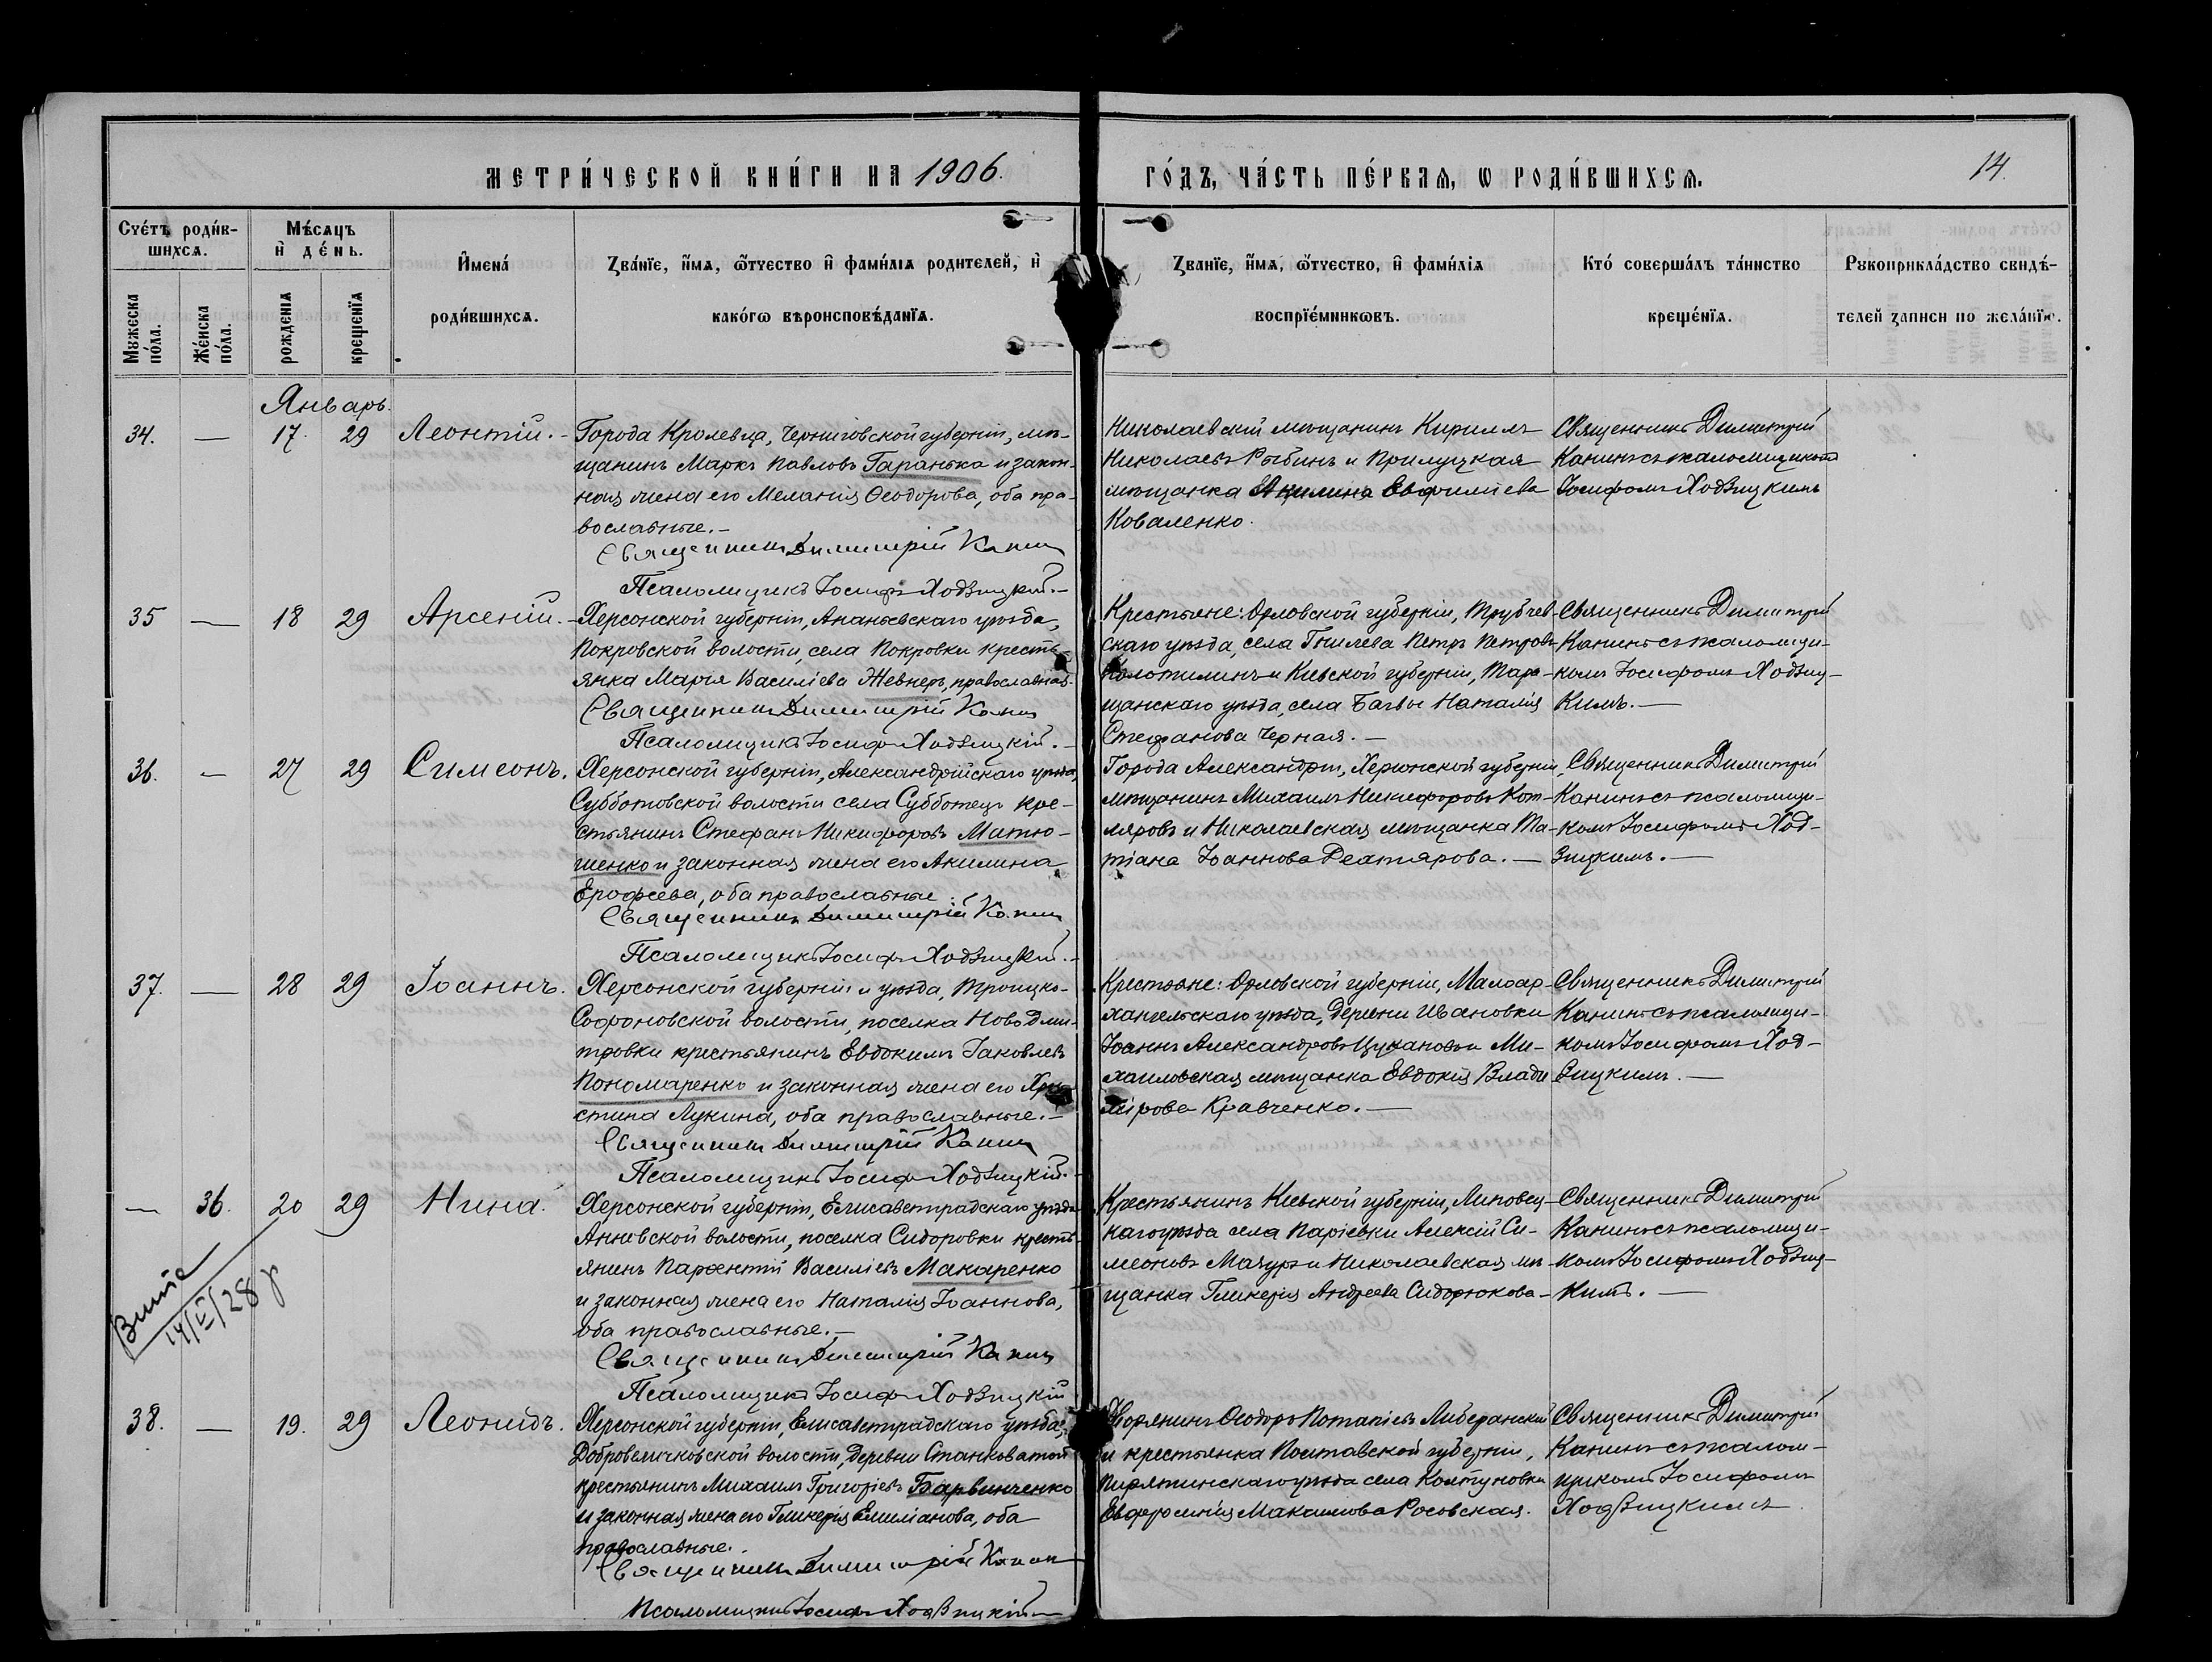 МЕТРИ́ЧЕСКОЙ КНИ́ГИ НА 1906.
ГО́ДЪ, ЧА́СТЬ ПЕ́РВАѦ, Ѡ РОДИ́ВШИХСѦ.
14.
Счéтъ роди́в-
шихсѧ.
Мужеска
по́ла.
Же́нска
по́ла.
Мѣ́сѧцъ
и҆ де́нь.
рожденїѧ
крещенїѧ
И҆мена́
роди́вшихсѧ.
Зва́нїе, и҆́мѧ, ѻ҆́тчество и҆ фами́лїѧ родителей, и҆
како́гѡ вѣроисповѣ́данїѧ.
Зва́нїе, и҆́мѧ, ѻ҆́тчество, и҆ фами́лїѧ
воспрїе́мникѡвъ.
Кто́ соверша́лъ та́инство
креще́нїѧ.
Рꙋкоприкла́дство свидѣ́-
телей записи по жела́нїю.
Январь.
34. — 17 29 Леонтій.
Города Кролевца, Черниговской губерніи, мѣ-
щанинъ Маркъ Павловъ Гаранька и закон-
ная жена его Меланія Ѳеодорова, оба пра-
вославные.—
Священникъ Димитрій Канин
Псаломщикъ Іосифъ Ходзицкій.—
Николаевскій мѣщанинъ Кириллъ
Николаевъ Рыбинъ и Прилуцкая
мѣщанка Акилина Евфиміева
Коваленко.
Священникъ Димитрій
Канинъ съ псаломщикомъ
Іосифомъ Ходзицкимъ
35 — 18 29 Арсеній.
Херсонской губерніи, Ананьевскаго уѣзда,
Покровской волости, села Покровки кресть-
янка Марія Василіева Жевнеръ, православная.
Священникъ Димитрій Канин
Псаломщикъ Іосифъ Ходзицкій.—
Крестьяне: Орловской губерніи, Трубчев-
скаго уѣзда, села Гнилева Петръ Петровъ
Колотилинъ и Кіевской губерніи, Тара-
щанскаго уѣзда, села Багвы Наталія
Стефанова Черная.—
Священникъ Димитрій
Канинъ съ псаломщи-
комъ Іосифомъ Ходзиц-
кимъ.—
36. — 27 29 Симеонъ.
Херсонской губерніи, Александрійскаго уѣзда,
Субботовской волости села Субботецъ кре-
стьянинъ Стефанъ Никифоровъ Матю-
шенко и законная жена его Акилина
Ерофеева, оба православные.
Священникъ Димитрій Канин
Псаломщикъ Іосифъ Ходзицкій.—
Города Александріи, Херсонской губерніи,
мѣщанинъ Михаилъ Никифоровъ Кот-
ляровъ и Николаевская мѣщанка Та-
тіана Іоаннова Дехтярова.—
Священникъ Димитрій
Канинъ съ псаломщи-
комъ Іосифомъ Ход-
зицкимъ.—
37. — 28 29 Іоаннъ.
Херсонской губерніи и уѣзда, Троицко-
Софроновской волости, поселка Ново Дми-
тровки крестьянинъ Евдокимъ Іаковлевъ
Пономаренко и законная жена его Хри-
стина Лукина, оба православные.—
Священникъ Димитрій Канин
Псаломщикъ Іосифъ Ходзицкій.—
Крестьяне: Орловской губерніи, Малоар-
хангельскаго уѣзда, деревни Ивановки
Іоаннъ Александровъ Цукановъ и Ми-
хаиловская мѣщанка Евдокія Влади
мірова Кравченко.—
Священникъ Димитрій
Канинъ съ псаломщи-
комъ Іосифомъ Ход-
зицкимъ.—
— 36. 20 29 Нина.
14/II/28 р
Херсонской губерніи, Елисаветградскаго уѣзда
Анновской волости, поселка Сидоровки кресть-
янинъ Парѳентій Василіевъ Макаренко
и законная жена его Наталія Іоаннова,
оба православные.—
Священникъ Димитрій Канин
Псаломщикъ Іосифъ Ходзицкій
Крестьянинъ Кіевской губерніи, Липовец-
каго уѣзда села Паріевки Алексій Си-
меоновъ Мазуръ и Николаевская мѣ-
щанка Гликерія Андреева Сидорюкова—
Священникъ Димитрій
Канинъ съ псаломщи-
комъ Іосифомъ Ходзиц-
кимъ.—
38. — 19. 29 Леонидъ.
Херсонской губерніи, Елисаветградскаго уѣзда,
Добровеличковской волости, деревни Станковатой
крестьянинъ Михаилъ Григоріевъ Барвинченко
и законная жена его Гликерія Емиліанова, оба
православные.
Священникъ Димитрій Канин
Псаломщикъ Іосифъ Ходзицкій—
Дворянинъ Ѳеодоръ Потапіевъ Либеранскій
и крестьянка Полтавской губерніи,
Пирятинскаго уѣзда села Колтуновки
Евфросинія Максимова Росовская.
Священникъ Димитрій
Канинъ съ псалом-
щикомъ Іосифомъ
Ходзицкимъ